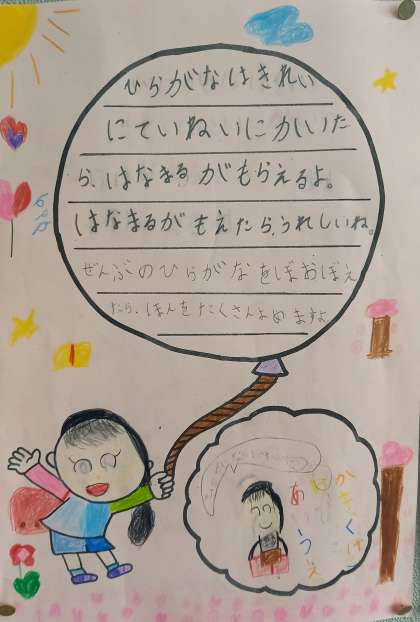 ひらがなはきれい
にていねいにかいた
ら、はなまるがもらえるよ。
はなまるがもえたら、うれしいね。
ぜんぶのひらがなをぼおぼえ
たら、ほんをたくさんよめますよ
かきくけこ
あいうえ